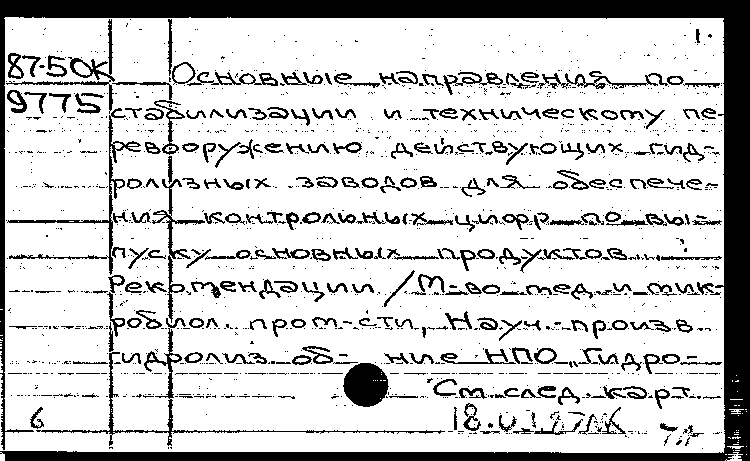 1.
87-5 ОК Основные направления по
9775 стабилизации и техническому пе-
ревооружению действующих гид-
ролизных заводов для обеспече-
ния контрольных цифр по вы-
пуску основных продуктов.
Рекомендации / М-во мед. и мик-
робиол. пром-сти, Науч.-произв.
гидролиз. об-ние НПО „Гидро-
См. след. карт.
6 18.03.87